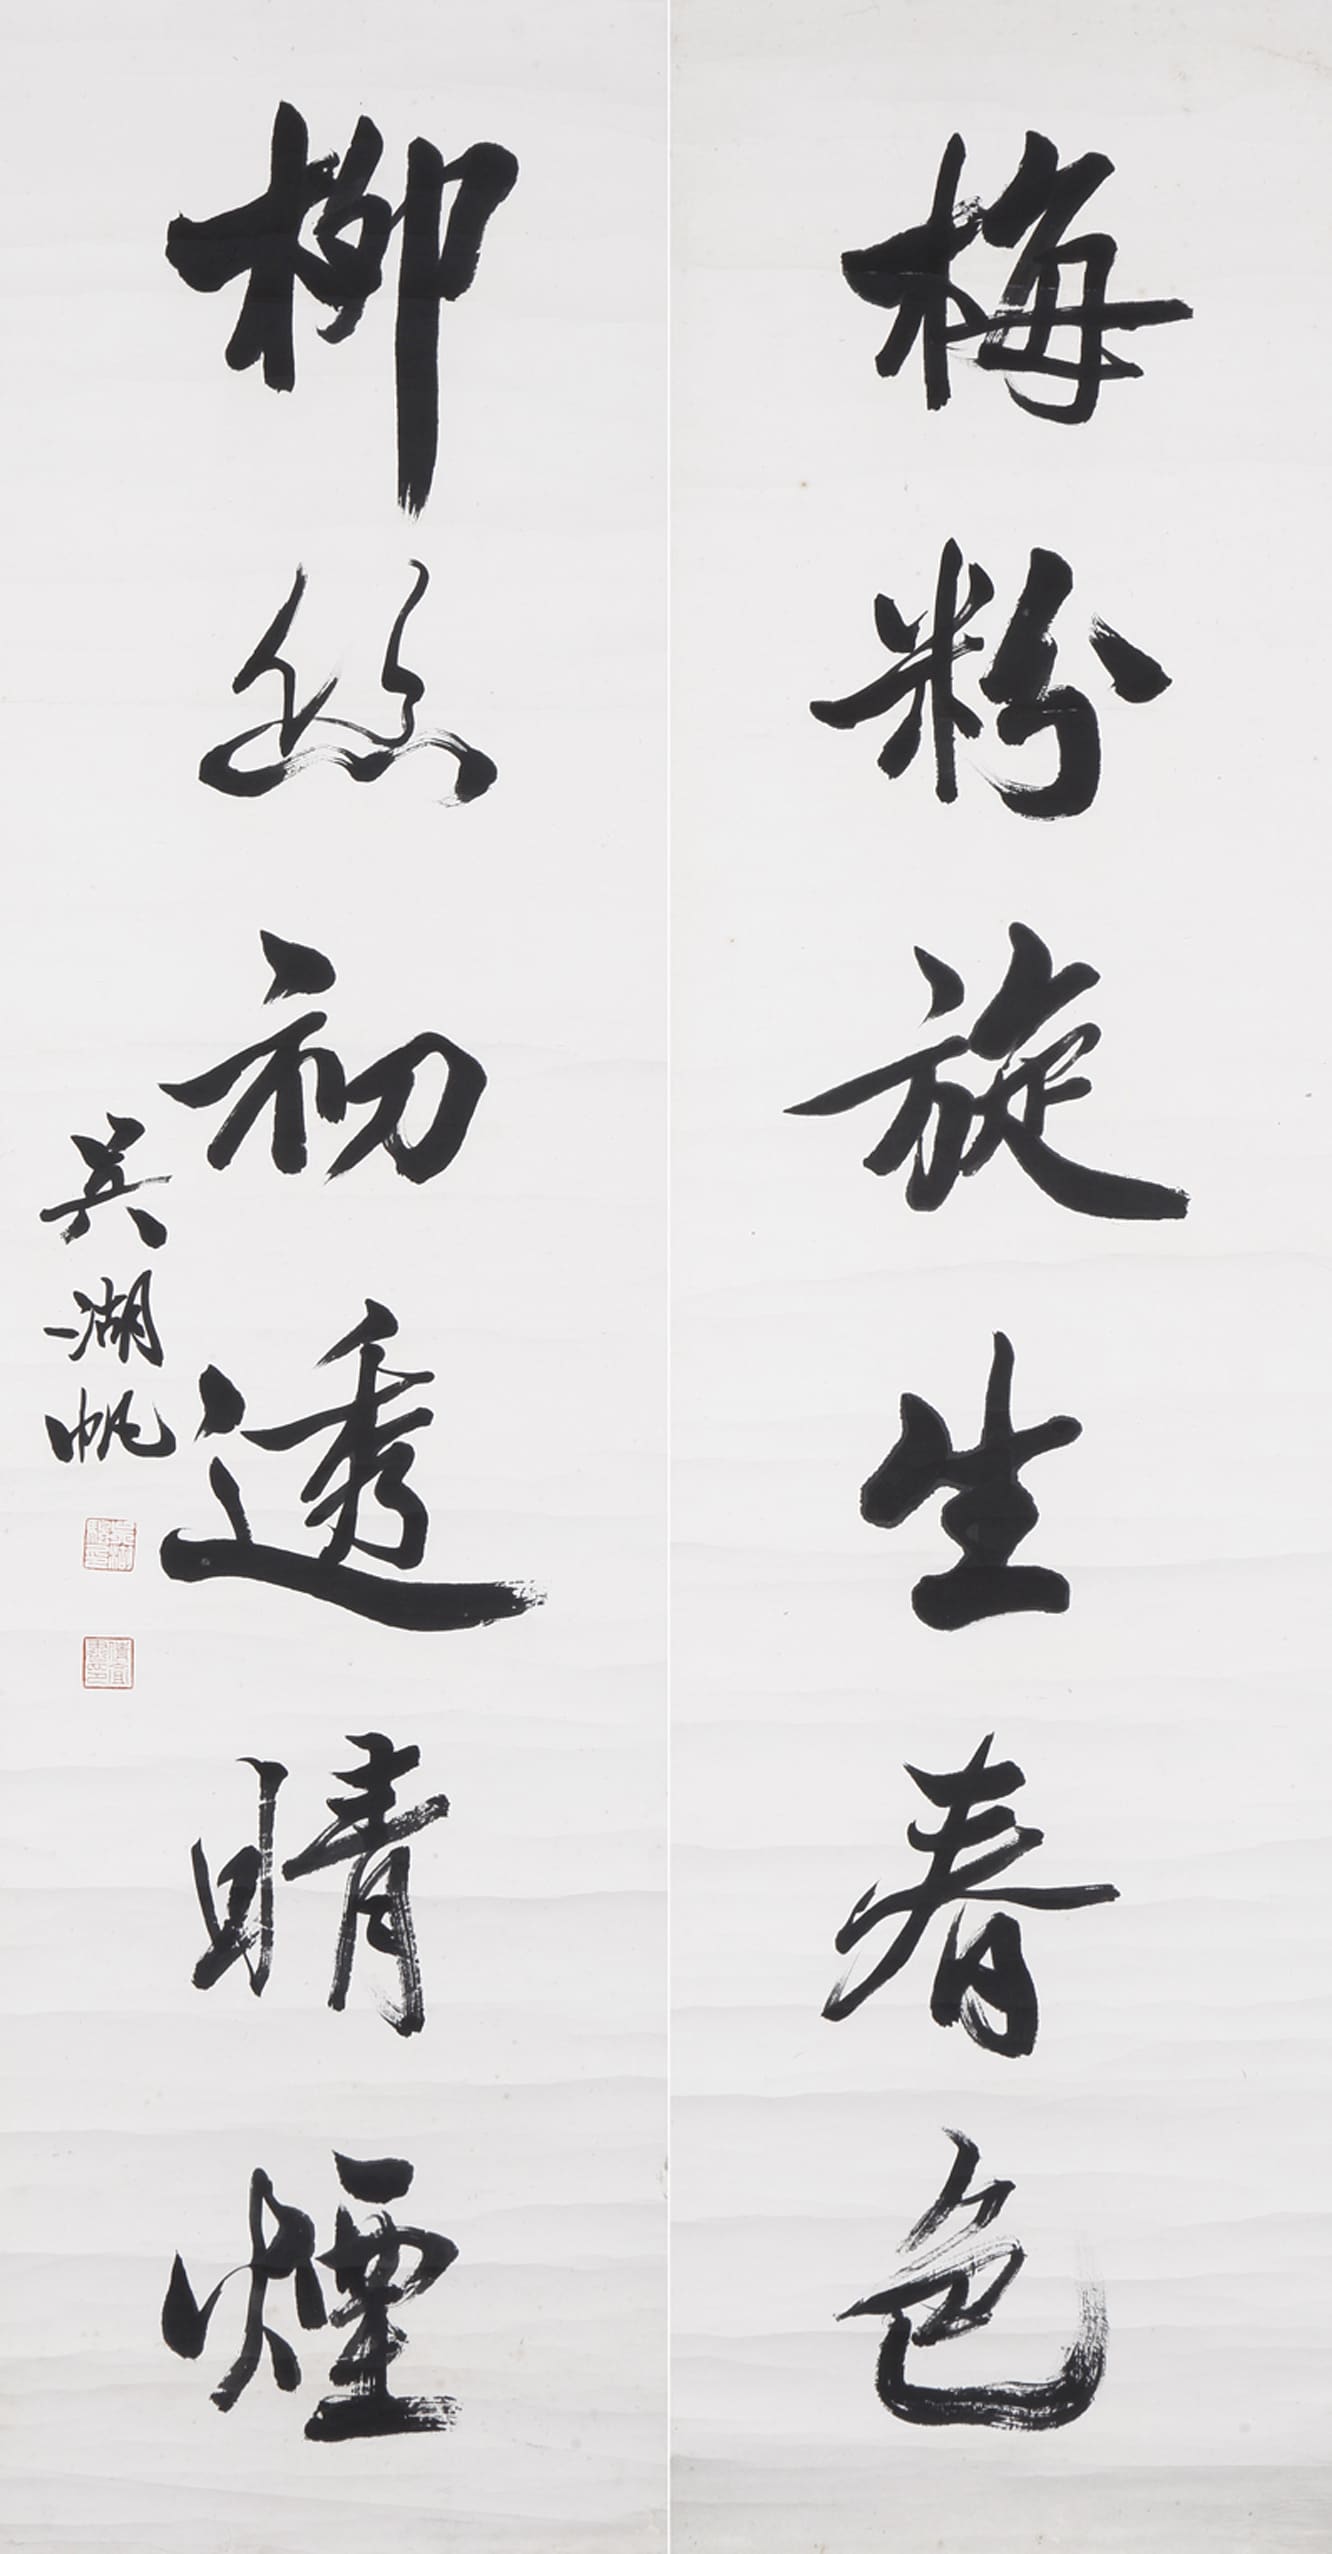 梅粉旋生春色
柳丝初透晴煙
吴湖帆